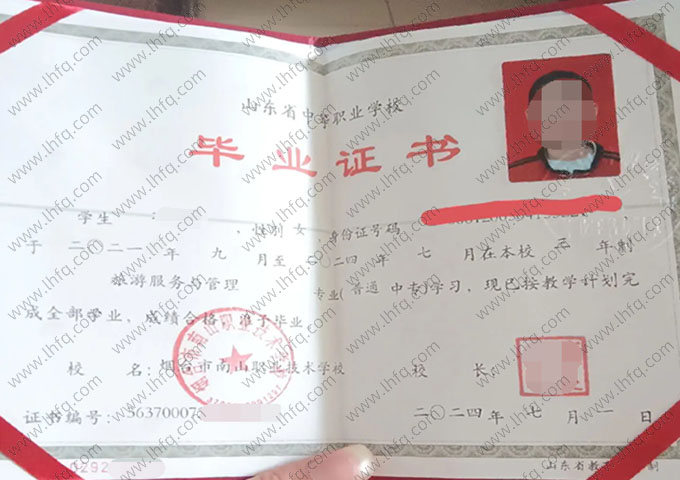 山东省中等职业学校
毕业证书
学生
,性别 女 ,身份证号码
于 二〇二一 年 九 月至 二〇二四 年 七 月在本校 年制
旅游服务与管理 专业(普通中专)学习,现已按教学计划完
成全部学业,成绩合格,准予毕业
校 名:烟台市南山职业技术学校 校 长:
证书编号:56370007
二〇二四年 七 月 一 日
0292
山东省教 制
www.lhfq.com